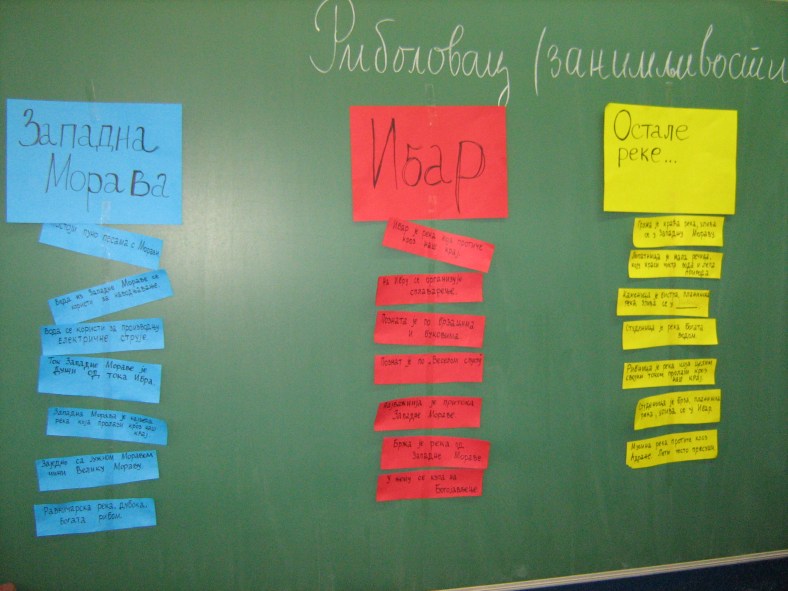 Риболовац (занимљивости
Западна
Морава
Постоји пуно песама о Морави
Вода из Западне Мораве се
користи за наводњавање.
Вода се користи за производњу
електричне струје.
Ток Западне Мораве је
дужи од тока Ибра.
Западна Морава је највећа
река која пролази кроз наш
крај.
Заједно са Јужном Моравом
чини Велику Мораву.
Равничарска река, дубока,
богата рибом.
Ибар
Ибар је река која протиче
кроз наш крај.
На Ибру се организује
сплаварење.
Позната је по брзацима
и буковима.
Познат је по „Веселом спусту
је притока
Западне Мораве.
Бржа је река од
Западне Мораве
У њему се купа на
Богојављење.
Остале
реке...
Гружа је крава река, улива
се у Западну Мораву.
је мала речица,
коју краси чиста вода и лепа
природа.
је бистра, планинска
река улива се у
Студеница је река богата
водом.
Рибница је река која целим
својим током пролази кроз
наш крај.
Студеница је брза, планинска
река, улива се у Ибар.
река протиче кроз
Адране. Лети често пресуши.